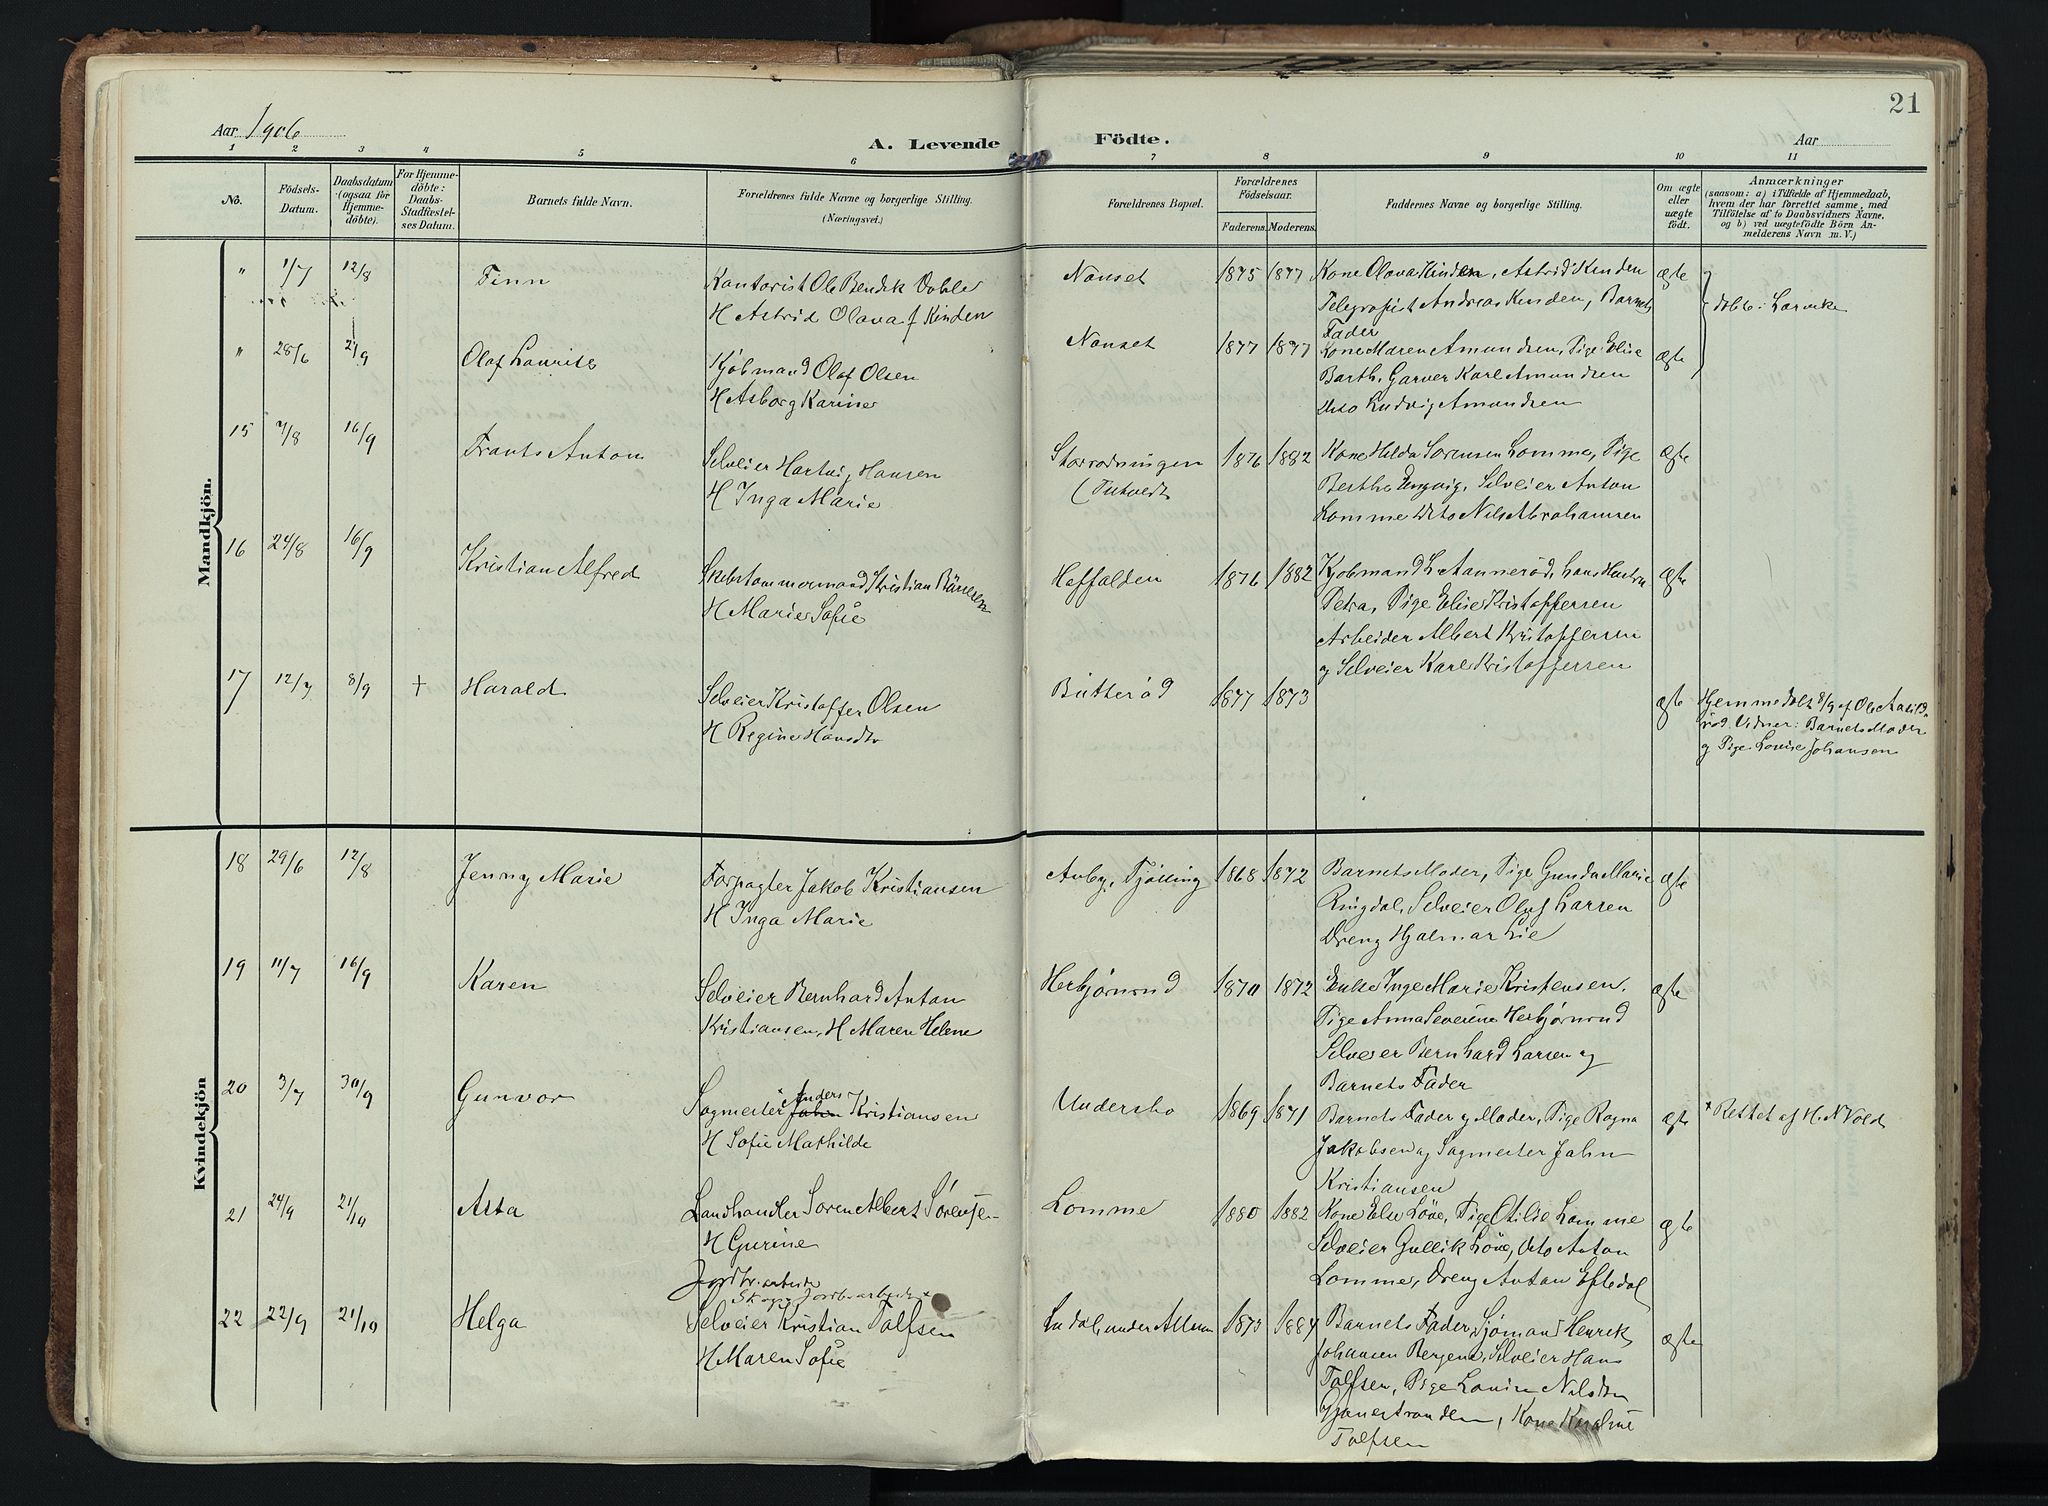 21
Aar 1906
A. Levende Födte.
Aar
1 2 3 4 5 6 7 8 9 10 11
No.
Födsels-
Datum.
Daabsdatum
(ogsaa for
Hjemme-
döbte).
For Hjemme-
döbte:
Daabs-
Stadfæstel-
ses Datum.
Barnets fulde Navn.
Forældrenes fulde Navne og borgerlige Stilling.
(Næringsvei.)
Forældrenes Bopæl.
Forældrenes
Födselsaar.
Faderens. Moderens.
Faddernes Navne og borgerlige Stilling.
Om ægte
eller
uægte
födt.
Anmærkninger
(saasom: a) i Tilfælde af Hjemmedaab,
hvem der har forrettet samme, med
Tilföielse af to Daabsvidners Navne,
og b) ved uægtefödte Börn An-
melderens Navn m. V.)
Mandkjön.
" 1/7 12/8 Finn
Kontorist Ole Bendik Dobloe
H Astrid Olava f Kinden
Nanset 1875 1877
Kone Olava Kinden, Astrid Kinden
Telegrafist Andreas Kinden, Barnets
Fader
ægte
døbt i Larvik
" 28/6 2/9 Olaf Laurits
Kjøbmand Olaf Olsen
H Asborg Karine
Nanset 1877 1877
Kone Maren Amundsen, Pige Elise
Barth, Garver Karl Amundsen
Dito Ludvig Amundsen
ægte
15 7/8 16/9 Frants Anton
Selveier Hartvig Hansen
H Inga Marie
Storrødningen
(Tutvedt
1876 1882
Kone Hilda Sørensen Lomme, Pige
Berthe Engvig, Selveier Anton
Lomme Dito Nils Abrahamsen
ægte
16 24/8 16/9 Kristian Alfred
Skibstømmermand Kristian Bønesen
H Marie Sofie
Haffalden 1876 1882
Kjøbmand L Aannerød, hans Hustru
Petra, Pige Elise Kristoffersen
Arbeider Albert Kristoffersen
og Selveier Karl Kristoffersen
ægte
17 12/7 8/9 + Harald
Selveier Kristoffer Olsen
H Regine Hansdtr
Butterød 1877 1873
ægte
Hjemmedøbt 8/9 af Ole Aasild-
rød. Vidner: Barnets Moder
og Pige Lovise Johansen
Kvindekjön
18 29/6 12/8 Jenny Marie
Forpagter Jakob Kristiansen
H Inga Marie
Auby, Tjølling 1868 1872
Barnets Moder, Pige Gunda Marie
Ringdal, Selveier Olaf Larsen
Dreng Hjalmar Lie
ægte
19 11/7 16/9 Karen
Selveier Bernhard Anton
Kristiansen, H Maren Helene
Herbjørnrød 1870 1872
Enke Inge Marie Kristensen,
Pige Anna Severine Herbjørnrød
Selveier Bernhard Larsen og
Barnets Fader
ægte
20 3/7 30/9 Gunvor
Anders
Sagmester John Kristiansen
H Sofie Mathilde
Undersbo 1869 1871
Barnets Fader og Moder, Pige Ragna
Jakobsen og Sagmester John
Kristiansen
ægte
x Rettet af H. N Vold
21 24/9 21/10 Asta
Landhandler Søren Albert Sørensen
H Gurine
Lomme 1880 1882
Kone Else Løve, Pige Otilie Lomme
Selveier Gullik Løve, Dito Anton
Lomme, Dreng Anton Eftedal
ægte
Jordbr. arbeider
Skog & Jordbrarbeider
22 22/9 21/10 Helga
Selveier Kristian Tolfsen
H Maren Sofie
Ludal, under Allum 1873 1884
Barnets Fader, Sjømand Henrik
Johansen Bergene, Selveier Hans
Tolfsen, Pige Lovise Nilsen
Gjonestranden, Kone Karoline
Tolfsen
ægte